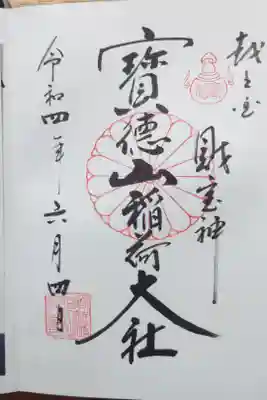 越之国
財宝神
寳徳山稲荷大社
令和四年六月四日